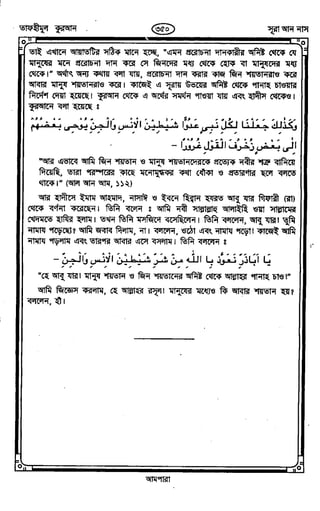 তাফহীমুল কুরআন
৩৫০
সূরা আন নাস
তাই এখানে আয়াতটির সঠিক মানে হচ্ছে, "এমন প্ররোচনা দানকারীর অনিষ্ট থেকে যে
মানুষের মনে প্ররোচনা দান করে সে জিনদের মধ্য থেকে হোক বা মানুষদের মধ্য
থেকে।" অর্থাৎ অন্য কথায় বলা যায়, প্ররোচনা দান করার কাজ জিন শয়তানরাও করে
আবার মানুষ শয়তানরাও করে। কাজেই এ সূরায় উভয়ের অনিষ্ট থেকে পানাহ চাওয়ার
নির্দেশ দেয়া হয়েছে। কুরআন থেকে এ অর্থের সমর্থন পাওয়া যায় এবং হাদীস থেকেও।
কুরআনে বলা হয়েছে :
وَكَذٰلِكَ جَعَلْنَا لِكُلِّ نَبِيٍّ عَدُوًّا شَيٰطِيْنَ الْاِنْسِ وَالْجِنِّ يُوْحِيْ بَعْضُهُمْ
اِلٰى بَعْضٍ زُخْرُفَ الْقَوْلِ غُرُوْرًا -
"আর এভাবে আমি জিন শয়তান ও মানুষ শয়তানদেরকে প্রত্যেক নবীর শত্রু বানিয়ে
দিয়েছি, তারা পরস্পরের কাছে মনোমুগ্ধকর কথা ধোঁকা ও প্রতারণার ছলে বলতে
থাকে।" (আল আন আম, ১১২)
আর হাদীসে ইমাম আহমাদ, নাসাঈ ও ইবনে হিব্বান হযরত আবু যার গিফারী (রা)
থেকে বর্ণনা করেছেন। তিনি বলেন : আমি নবী সাল্লাল্লাহু আলাইহি ওয়া সাল্লামের
খেদমতে হাযির হলাম। তখন তিনি মসজিদে বসেছিলেন। তিনি বললেন, আবু যার! তুমি
নামায পড়েছো? আমি জবাব দিলাম, না। বললেন, ওঠো এবং নামায পড়ো! কাজেই আমি
নামায পড়লাম এবং তারপর আবার এসে বসলাম। তিনি বললেন :
يَا اَبَاذَرٍّ تَعَوَّذْ بِاللّٰهِ مِنْ شَرِّ شَيٰطِيْنِ الْاِنْسِ وَالْجِنِّ -
"হে আবু যার! মানুষ শয়তান ও জিন শয়তানের অনিষ্ট থেকে আল্লাহর পানাহ চাও।"
আমি জিজ্ঞেস করলাম, হে আল্লাহর রসূল! মানুষের মধ্যেও কি আবার শয়তান হয়?
বললেন, হাঁ।
আমপারা